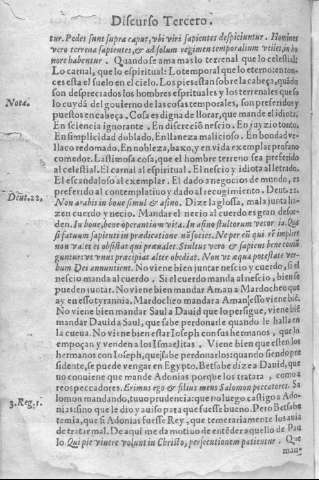 Discurso Tercero.
tur. Pedes sunt supra caput, vbi viri sapientes despiciuntur. Homines
vero terrena sapientes, & ad solum regimen temporalium vtiles, in ho
nore habentur. Quando se ama mas lo terrenal que lo celestial:
Lo carnal, que lo espiritual: Lo temporal que lo eterno: enton-
ces esta el suelo en el cielo. Los pies estan sobre la cabeça, quãdo
son despreciados los hombres espirituales y los terrenales que sa
Nota.
lo cuydã del gouierno de las cosas temporales, son preferidos y
puestos en cabeça. Cosa es digna de llorar, que mande el idiota:
En sciencia ignorante. En discreciõ nescio. En juyzio tonto.
En simplicidad dublado. En llaneza malicioso. En bondad ve-
llaco redomado. En nobleza, baxo, y en vida exemplar profano
comedor. Lastimosa cosa, que el hombre terreno sea preferido
al celestial. El carnal al espiritual. El nescio y idiota al letrado.
El escandaloso al exemplar. El dado a negocios de mundo, es
preferido al contemplatiuo y dado al recogimiento. Deut. 22.
Deut. 22.
Non arabis in boue simul & asino. Dize la glossa, mala junta ha-
zen cuerdo y necio. Mandar el necio al cuerdo es gran desor-
den. In boue, boue operantium vita. In asino stultorum vecordia. Qua
si fatuum sapienti in prædicatione nõ socies. Ne per eũ qui rẽ implet
non valet ei obsistat qui præualet. Stultus vero & sapiens bene coniũ
guntur: vt vnus præcipiat alter obediat. Non vt æqua potestate ver-
bum Dei annuntient. No viene bien juntar nescio y cuerdo, si el
nescio manda al cuerdo. Si el cuerdo manda al nescio, bien se
pueden juntar. No viene bien mandar Aman a Mardocheo que
ay en esso tyrannia. Mardocheo mandar a Aman, esso viene biẽ.
No viene bien mandar Saul a Dauid que lo persigue, viene biẽ
mandar Dauid a Saul, que sabe perdonarle quando le halla en
la cueua. No viene bien estar Ioseph con sus hermanos, que lo
empoçan y venden a los Ismaelitas. Viene bien que esten los
hermanos con Ioseph, que sabe perdonarlos: quando siendo pre
sidente, se puede vengar en Egypto. Betsabe dize a Dauid, que
no conuiene que mande Adonias porque los tratara, como a
reos peccadores. Erimus ego & filius meus Salomon peccatores. Sa
3. Reg. 1.
lomon mandando, tuuo prudencia: que no luego castigo a Ado-
nias: sino que le dio y auiso para que fuesse bueno. Pero Betsabe
temia, que si Adonias fuesse Rey, que temerariamente los auia
de tratar mal. De aqui me da motiuo de entẽder aquello de Pau
lo. Qui pie viuere volunt in Christo, persecutionem patientur. Que
man-